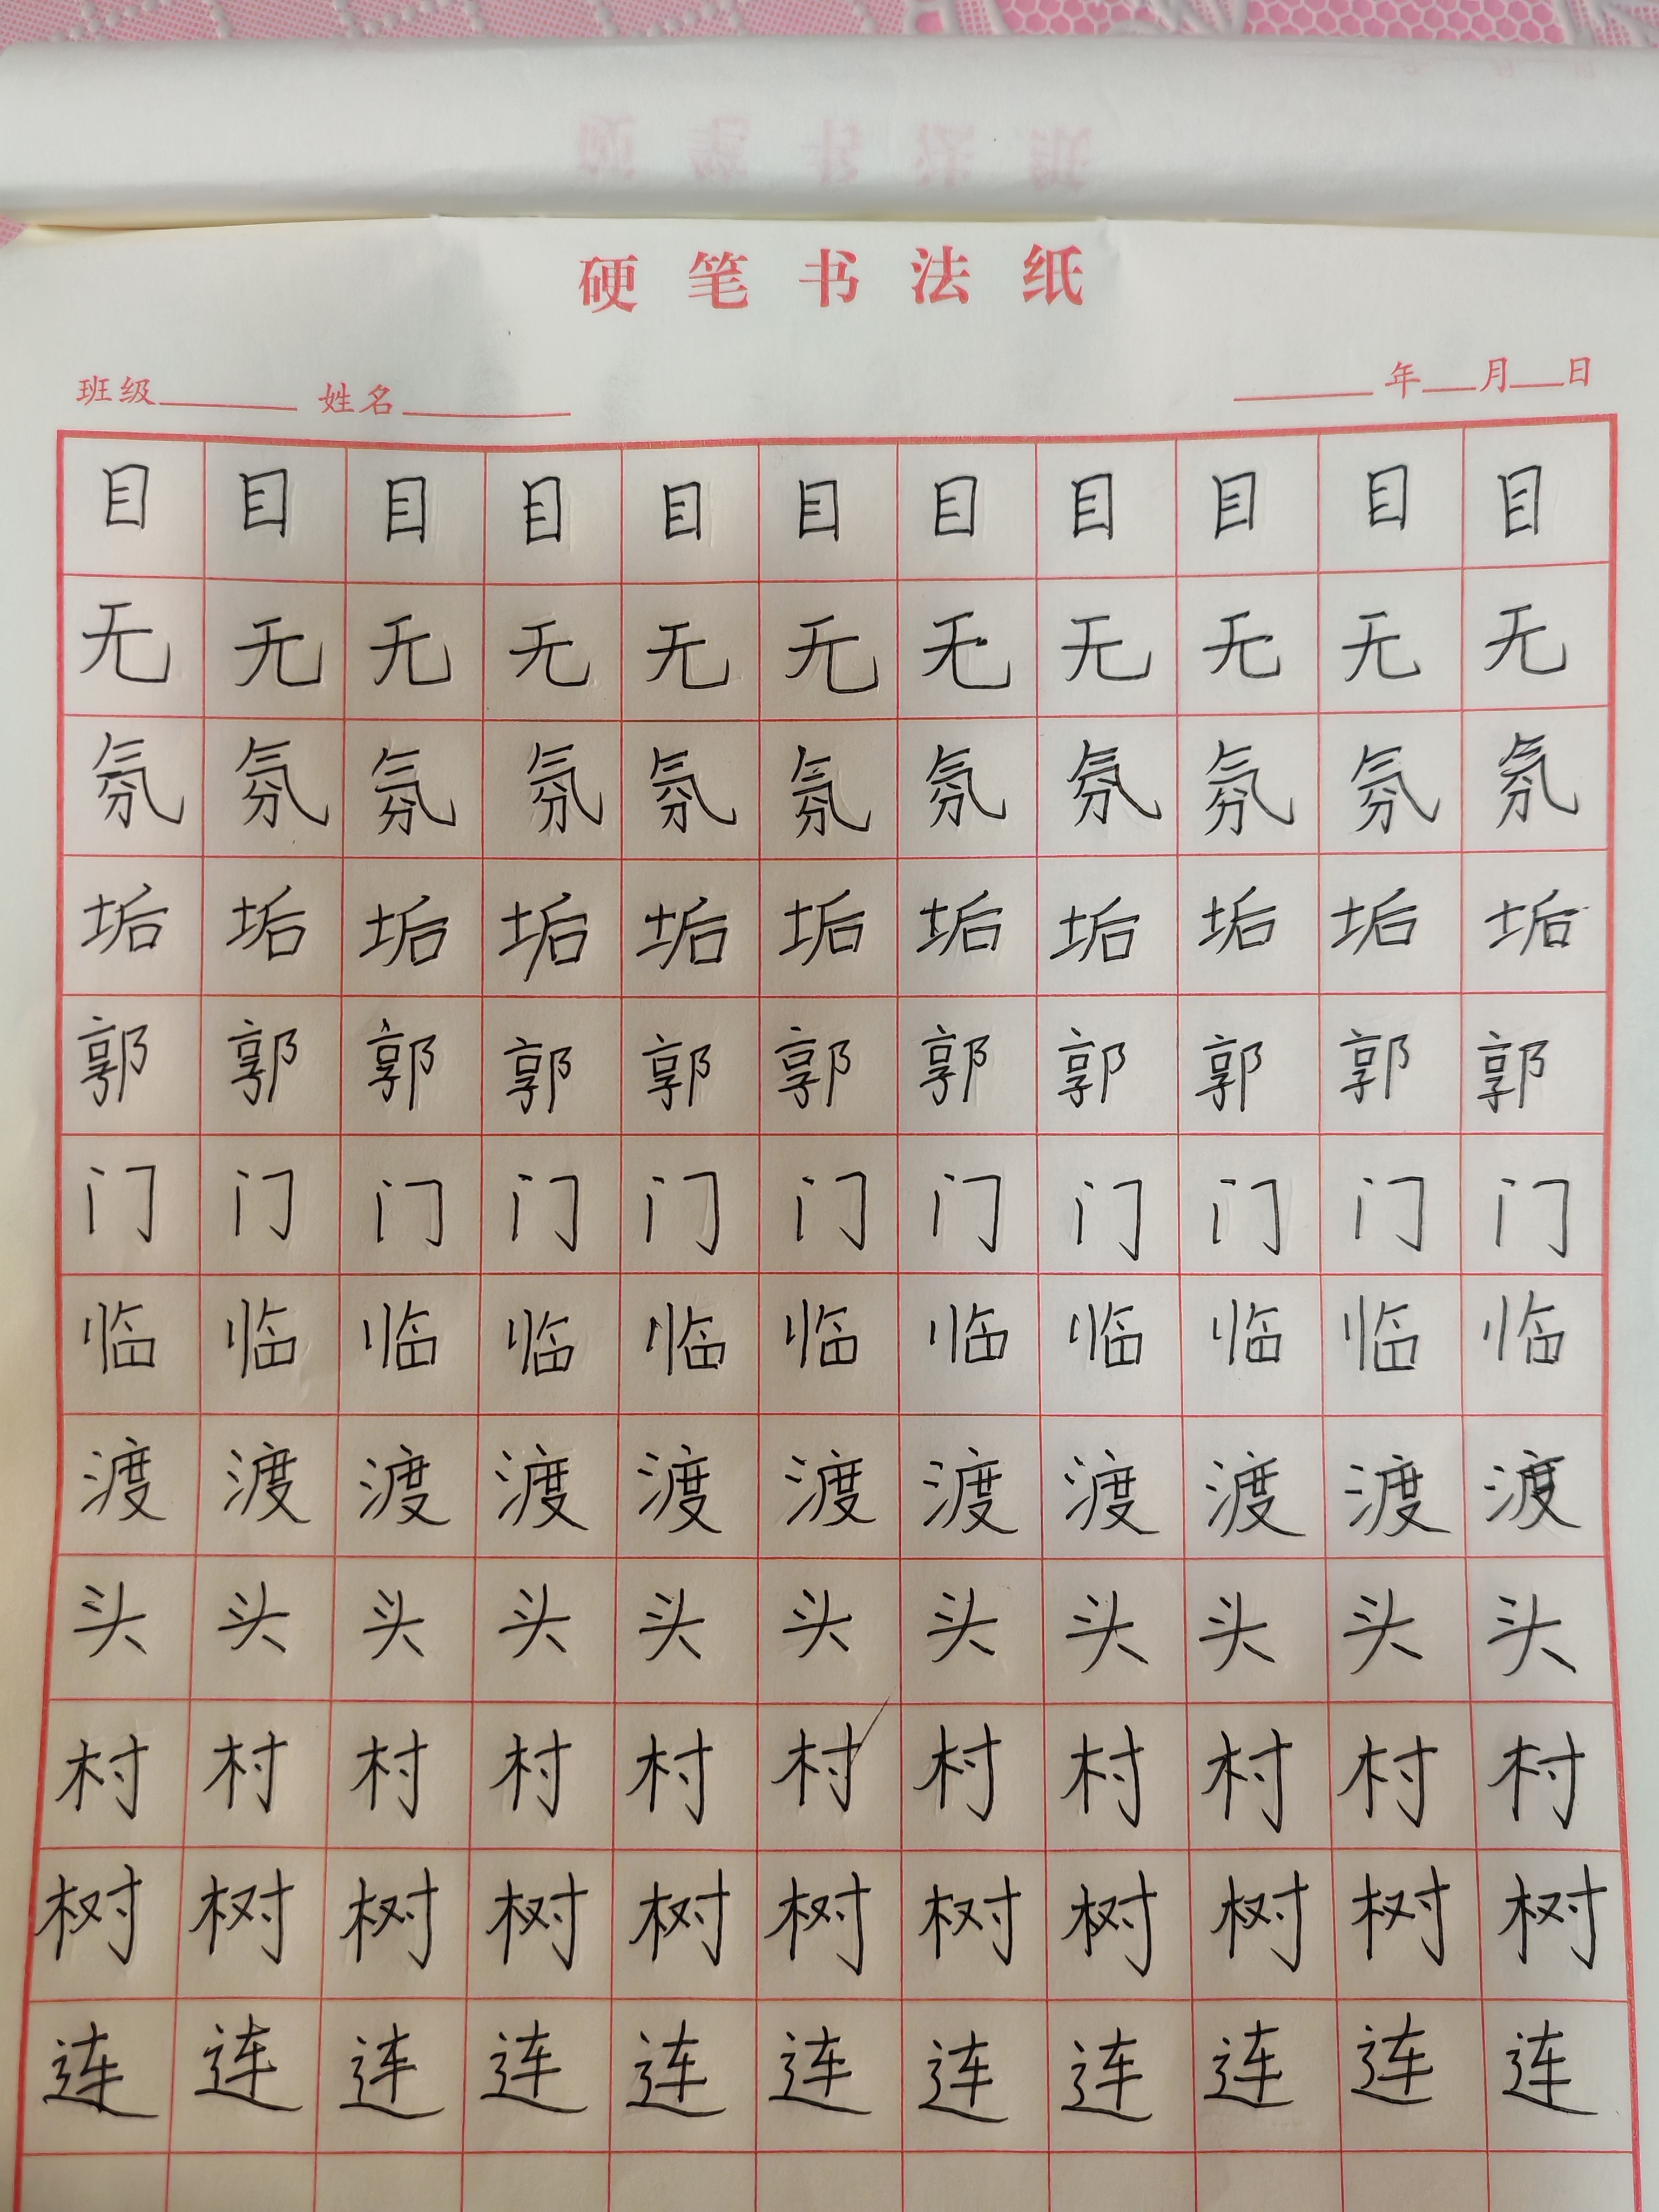 硬笔书法纸
班级 姓名 年 月 日
目目目目目目目目目目目
无无无无无无无无无无无
氛氛氛氛氛氛氛氛氛氛氛
垢垢垢垢垢垢垢垢垢垢垢
郭郭郭郭郭郭郭郭郭郭郭
门门门门门门门门门门门
临临临临临临临临临临临
渡渡渡渡渡渡渡渡渡渡渡
头头头头头头头头头头头
村村村村村村村村村村村
树树树树树树树树树树树
连连连连连连连连连连连